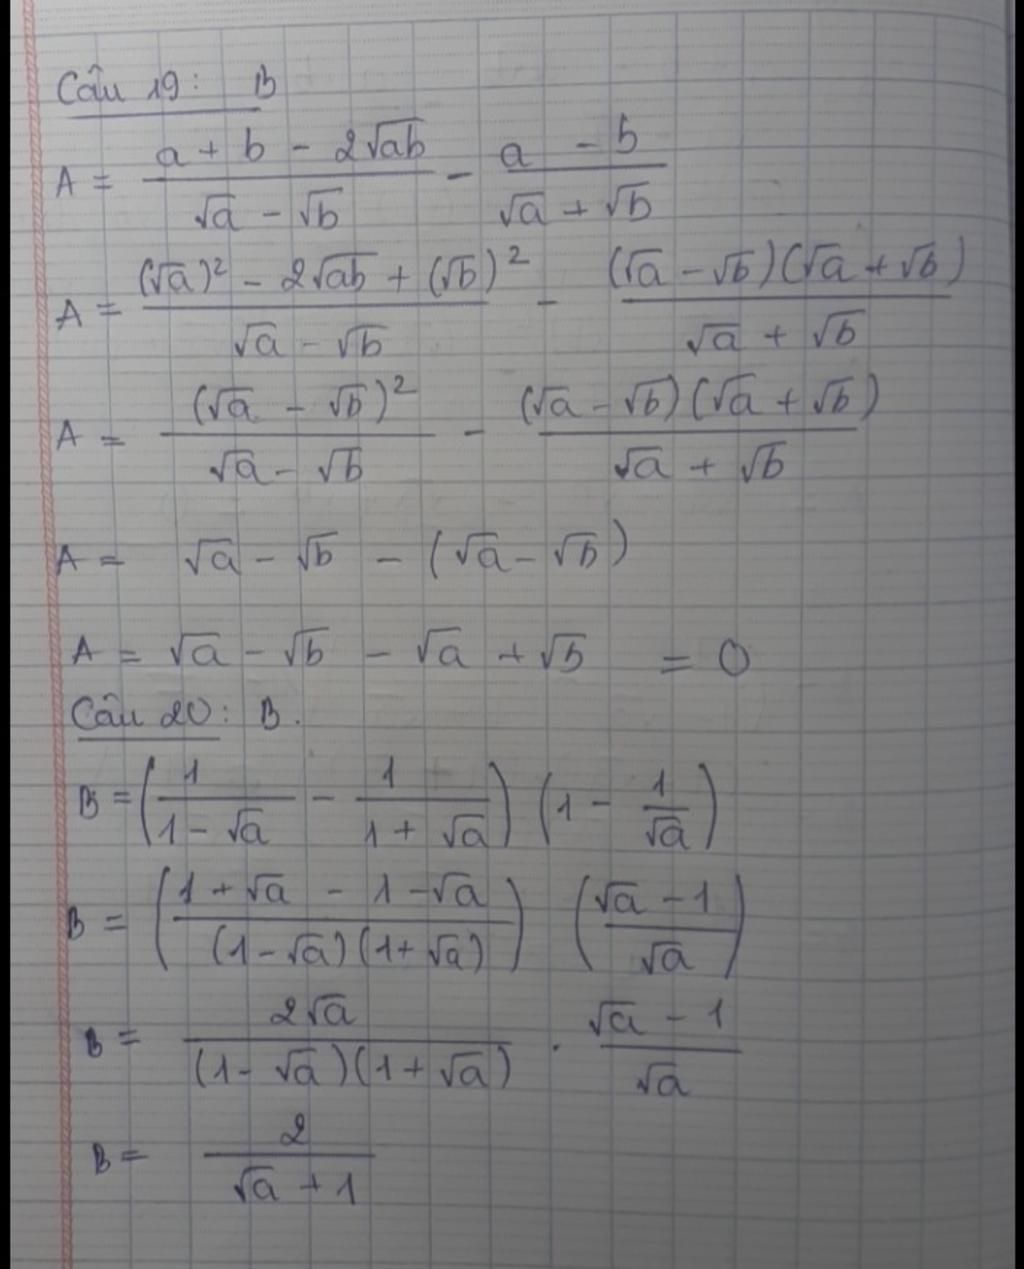 Câu 19: B
A = \frac{a + b - 2\sqrt{ab}}{\sqrt{a} - \sqrt{b}} - \frac{a - b}{\sqrt{a} + \sqrt{b}}
A = \frac{(\sqrt{a})^2 - 2\sqrt{ab} + (\sqrt{b})^2}{\sqrt{a} - \sqrt{b}} - \frac{(\sqrt{a} - \sqrt{b})(\sqrt{a} + \sqrt{b})}{\sqrt{a} + \sqrt{b}}
A = \frac{(\sqrt{a} - \sqrt{b})^2}{\sqrt{a} - \sqrt{b}} - \frac{(\sqrt{a} - \sqrt{b})(\sqrt{a} + \sqrt{b})}{\sqrt{a} + \sqrt{b}}
A = \sqrt{a} - \sqrt{b} - (\sqrt{a} - \sqrt{b})
A = \sqrt{a} - \sqrt{b} - \sqrt{a} + \sqrt{b} = 0
Câu 20: B.
B = \left(\frac{1}{1 - \sqrt{a}} - \frac{1}{1 + \sqrt{a}}\right) \left(1 - \frac{1}{\sqrt{a}}\right)
B = \left(\frac{1 + \sqrt{a} - 1 - \sqrt{a}}{(1 - \sqrt{a})(1 + \sqrt{a})}\right) \left(\frac{\sqrt{a} - 1}{\sqrt{a}}\right)
B = \frac{2\sqrt{a}}{(1 - \sqrt{a})(1 + \sqrt{a})} \cdot \frac{\sqrt{a} - 1}{\sqrt{a}}
B = \frac{2}{\sqrt{a} + 1}